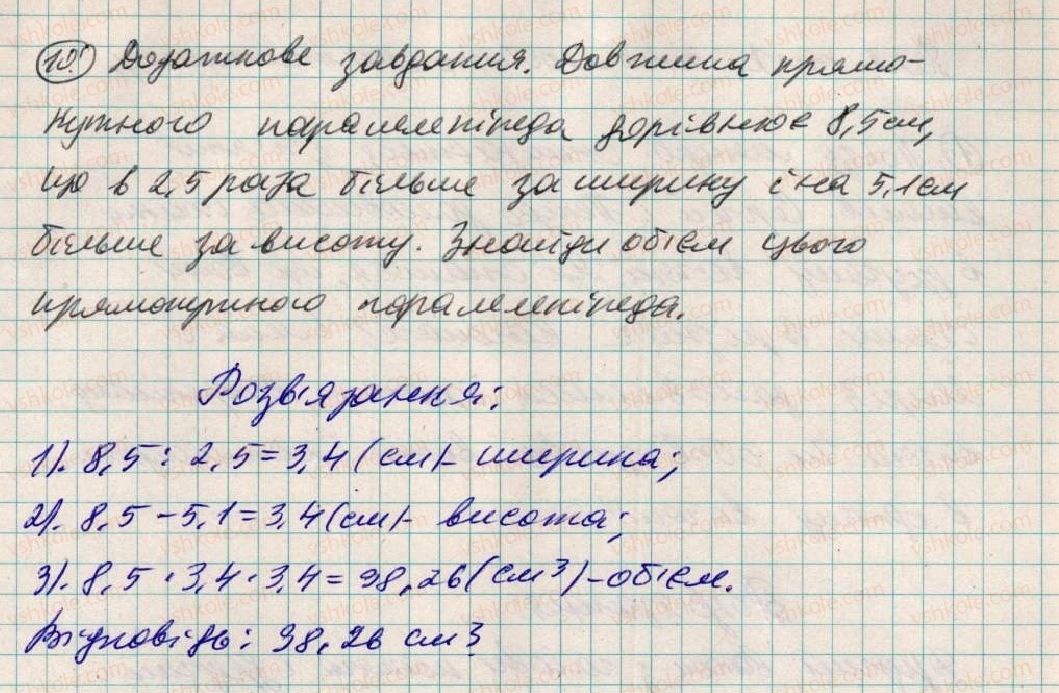 10. Додаткове завдання. Довжина прямо-
кутного паралелепіпеда дорівнює 8,5 см,
що в 2,5 раза більше за ширину і на 5,1 см
більше за висоту. Знайди обієм цього
прямокутного паралелепіпеда.
Розвіязання:
1). 8,5 : 2,5 = 3,4 (см) - ширина;
2). 8,5 - 5,1 = 3,4 (см) - висота;
3). 8,5 · 3,4 · 3,4 = 98,26 (см³) - обієм.
Відповідь: 98,26 см³